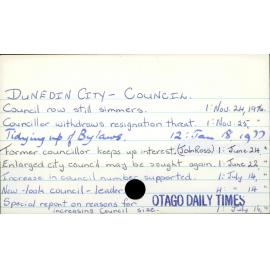 DUNEDIN CITY - COUNCIL.
Council row still simmers. 1: Nov. 24, 1976.
Councillor withdraws resignation threat. 1: Nov. 25, "
Tidying up of Bylaws. 12: Jan 18 1977
Former councillor keeps up interest. (John Ross) 1: June 24, "
Enlarged city council may be sought again. 1: June 22 "
Increase in council number supported. 1: July 14, "
New-look council - leader 4: " 14 "
Special report on reasons for OTAGO DAILY TIMES
increasing Council size. 1: July 14, "